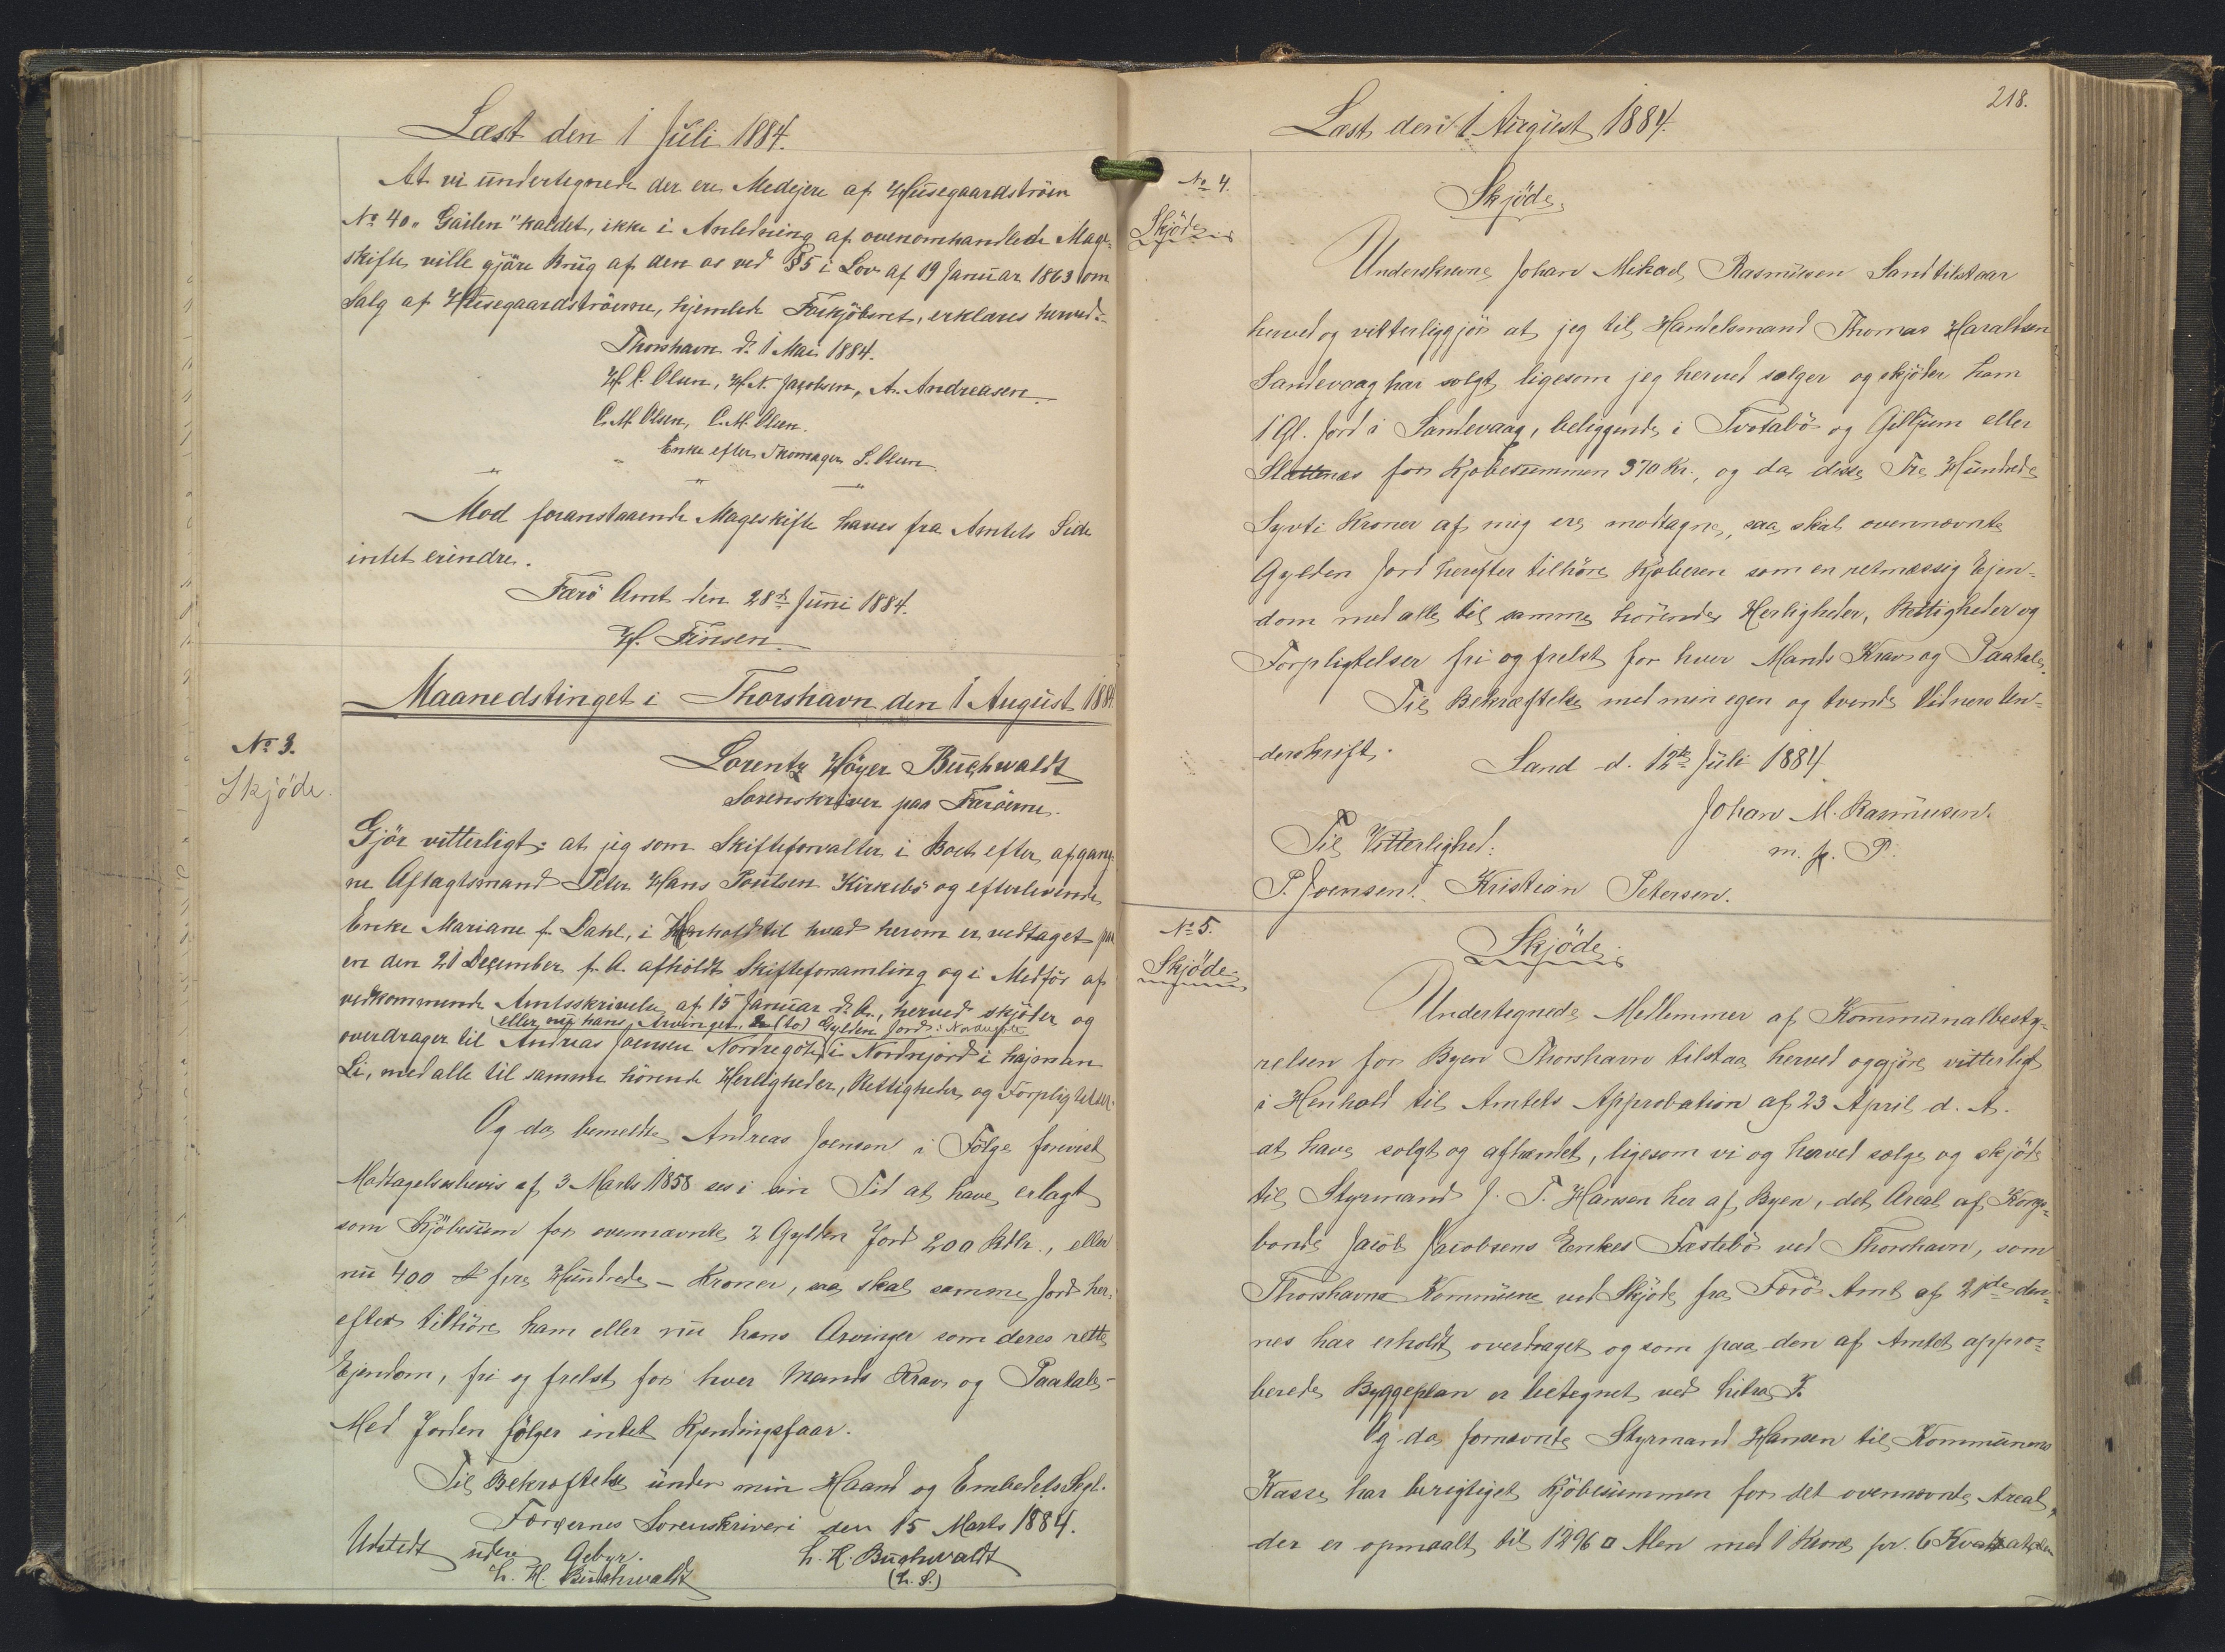 Læst den 1 Juli 1884.
At vi undertegnede der ere Medejere af Husegaardströen
No 40 "Gailen" kaldet, ikke i Anledning af ovenomhandlede Mage-
skifte ville gjöre Brug af den os ved §5 i Lov af 19 Januar 1863 om
Salg af Husegaardströerne, hjemlede Forkjöbsret, erklæres herved.
Thorshavn d. 1 Mai 1884.
H. C. Olsen, H. N. Jacobsen, A. Andreasen
C. M. Olsen, C. M. Olsen.
Enke efter Skomager S. Olsen
Mod foranstaaende Mageskifte haves fra Amtets Side
intet erindre.
Færö Amt den 28de Juni 1884.
H. Finsen
Maanedstinget i Thorshavn den 1 August 1884.
No 3.
Skjöde.
Lorentz Höyer Buchwaldt
Sorenskriver paa Færöerne.
Gjör vitterligt: at jeg som Skifteforvalter i Boet efter afgang-
ne Aftagtsmand Peter Hans Poulsen Kirkebö og efterlevende
Enke Mariane f. Dahl, i Henhold til hvad herom er vedtaget paa
en den 21 December f. A. afholdt Skifteforsamling og i Medför af
vedkommende Amtsskrivelse af 15 Januar d. A., herved skjöder og
(eller nu hans Arvinger, 2 (to) Gylden Jord i Nordregöte
overdrager til Andreas Joensen Nordregöte) i Nordrejord i hajman
Li, med alle til samme hörende Herligheder, Rettigheder og Forpligtelser.
Og da bemeldte Andreas Joensen i Fölge forevist
Modtagelsesbevis af 3 Marts 1858 ses i sin Tid at have erlagt
som Kjöbesum for ovennævnte 2 Gylden Jord 200 Rdlr., eller
nu 400 fire Hundrede - Kroner, saa skal samme Jord her-
efter tilhöre ham eller nu hans Arvinger som deres rette
Ejendom, fri og frelst for hver Mands Krav og Paatale.
Med Jorden fölger intet Kjendingsfaar.
Til Bekræftelse under min Haand og Embedets Segl.
Færöernes Sorenskriveri den 15 Marts 1884.
Udstedt uden Gebyr. L. H. Buchwaldt
L. H. Buchwaldt (L. S.)
218.
Læst den 1 August 1884.
No 4.
Skjöde
Skjöde
Underskrevne Johan Mikael Rasmussen Sand tilstaar
herved og vitterliggjör at jeg til Handelsmand Thomas Haraldsen
Sandevaag har solgt ligesom jeg herved sælger og skjöder ham
1 Gl. Jord i Sandevaag, beliggende i Tvotabö og Giljum eller
Slættenæs for Kjöbesummen 370 Kr., og da disse Tre Hundrede
Syvti Kroner af mig ere modtagne, saa skal ovennævnte
Gylden Jord herefter tilhöre Kjöberen som en retmæssig Ejen-
dom med alle til samme hörende Herligheder, Rettigheder og
Forpligtelser fri og frelst for hver Mands Krav og Paatale.
Til Bekræftelse med min egen og tvende Vidners Un-
derskrift.
Sand d. 12te Juli 1884
Johan M. Rasmussen.
Til Vitterlighed: m. f. P.
P. Joensen. Kristian Petersen.
No 5.
Skjöde
Skjöde
Undertegnede Medlemmer af Kommunalbesty-
relsen for Byen Thorshavn tilstaa herved og gjöre vitterligt
i Henhold til Amtets Approbation af 23 April d. A.
at have solgt og afhændet, ligesom vi og herved sælge og skjöde
til Styrmand J. P. Hansen her af Byen, det Areal af Konge-
bonde Jacob Jacobsens Enkes Fæstebö ved Thorshavn, som
Thorshavns Kommune ved Skjöde fra Færö Amt af 21de den-
nes har erholdt overdraget og som paa den af Amtet appro-
berede Byggeplan er betegnet ved Litra F.
Og da fornævnte Styrmand Hansen til Kommunens
Kasse har berigtiget Kjöbesummen for det ovennævnte Areal,
der er opmaalt til 1296 □ Alen med 1 Krone pr. 6 Kvadratalen